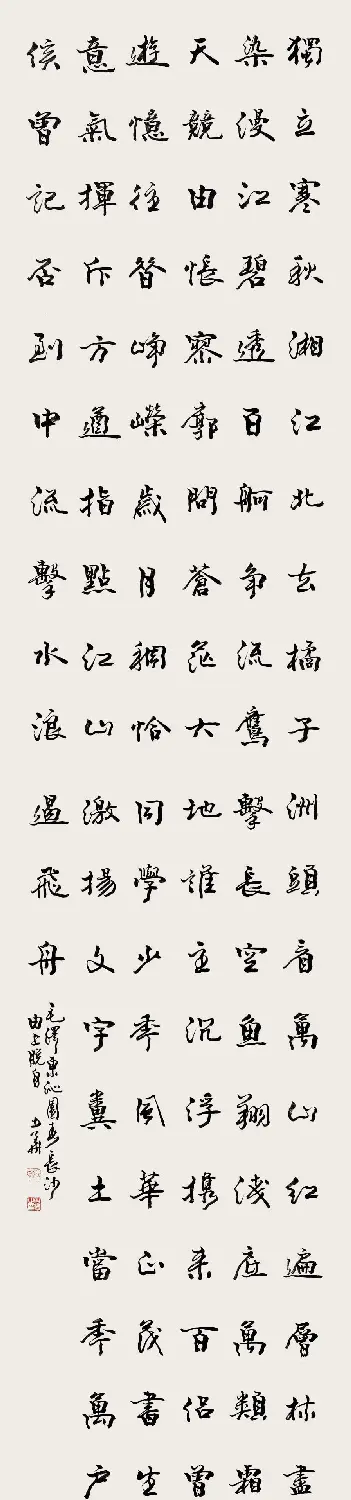 獨立寒秋湘江北去橘子洲頭看萬山紅遍層林盡
染漫江碧透百舸争流鷹擊長空魚翔淺底萬類霜
天競由悵寥廓問蒼茫大地誰主沉浮携来百侣曾
遊憶往昔崢嶸歲月稠恰同學少年風華正茂書生
意氣揮斥方遒指點江山激揚文字糞土當年萬户
侯曾記否到中流擊水浪遏飛舟
毛澤東沁園春長沙
由上脱自